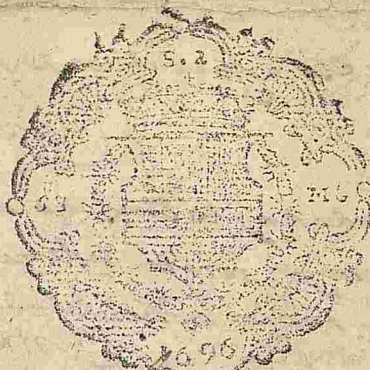 S. 2
MG
1696